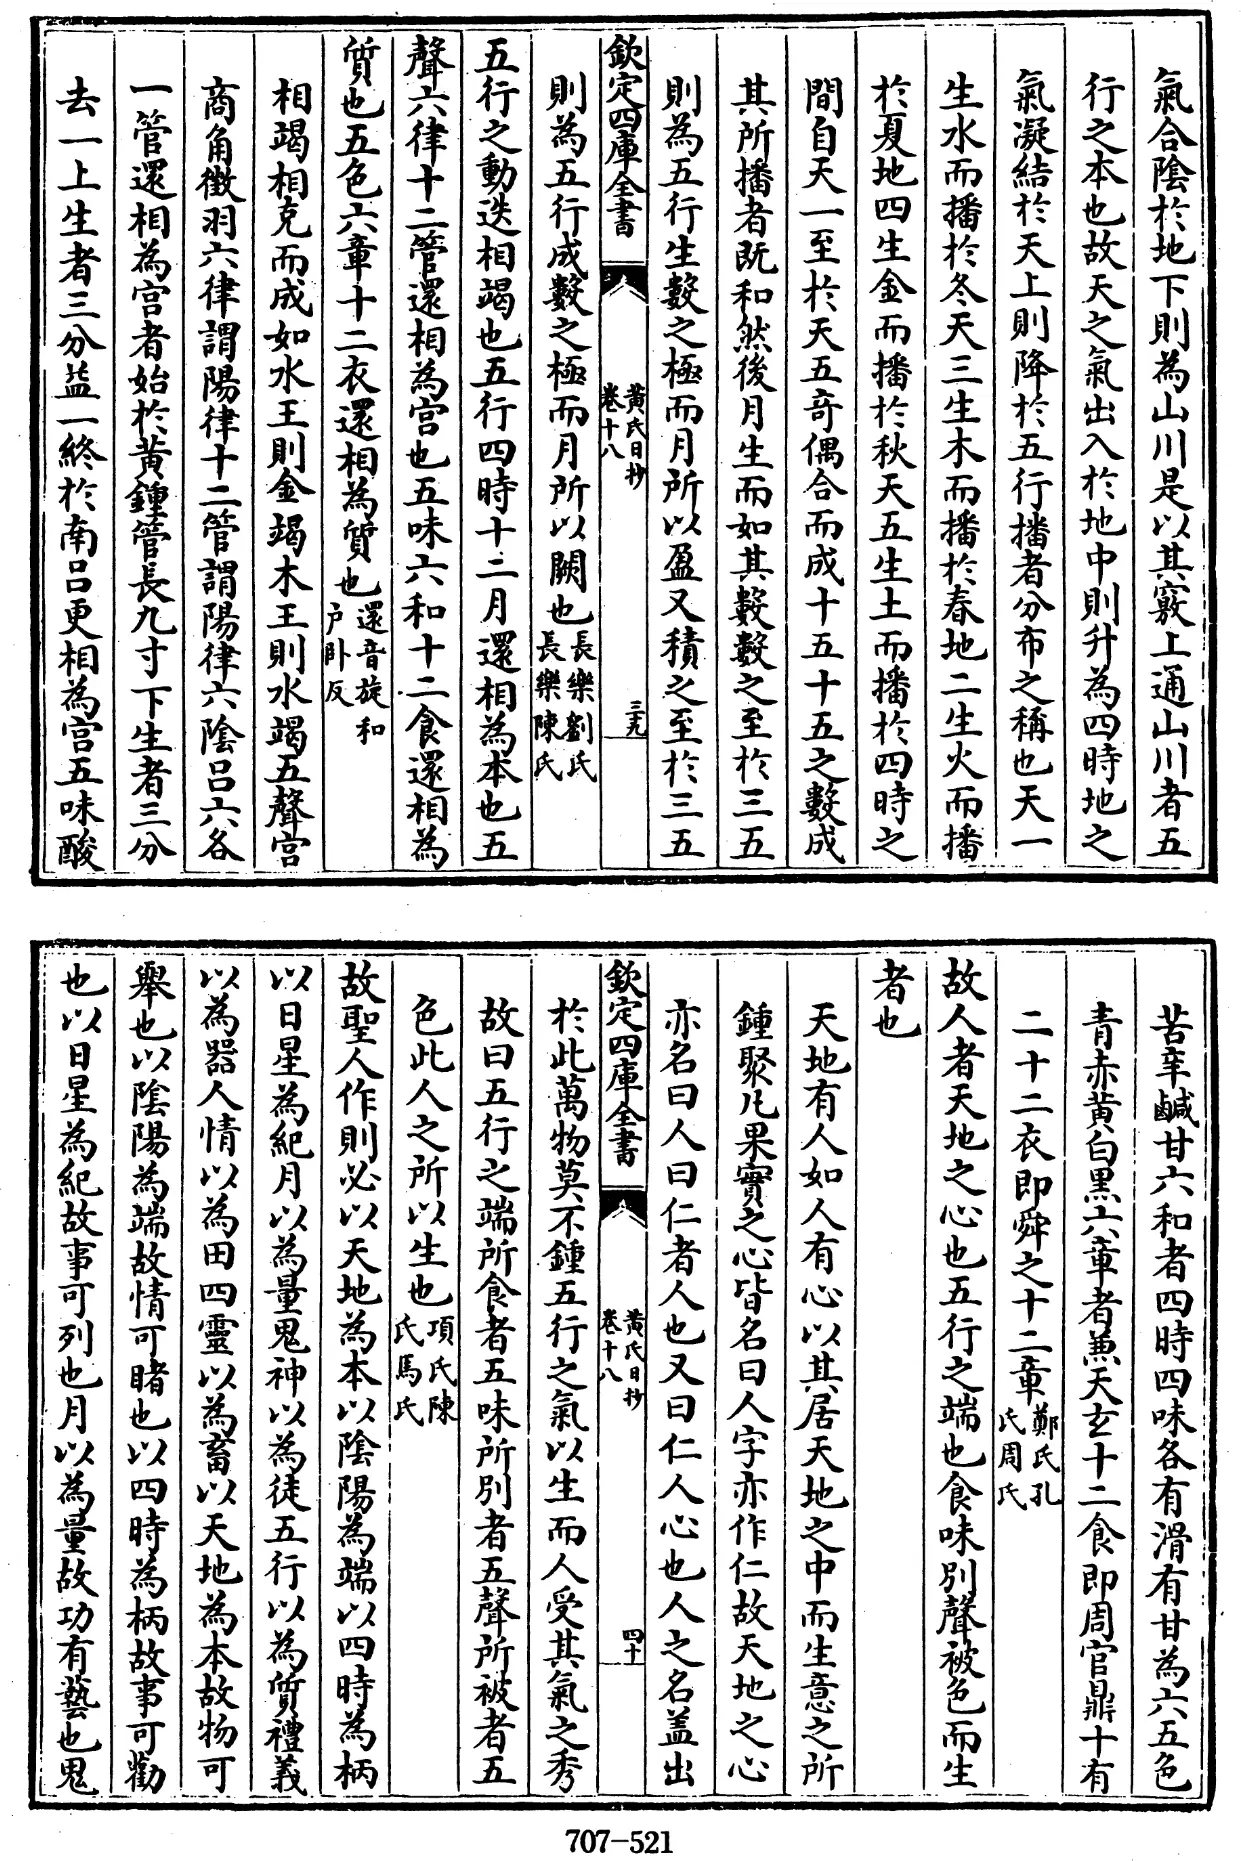 氣合陰於地下則為山川是以其竅上通山川者五
行之本也故天之氣出入於地中則升為四時地之
氣凝結於天上則降於五行播者分布之稱也天一
生水而播於冬天三生木而播於春地二生火而播
於夏地四生金而播於秋天五生土而播於四時之
間自天一至於天五奇偶合而成十五十五之數成
其所播者既和然後月生而如其數數之至於三五
則為五行生數之極而月所以盈又積之至於三五
欽定四庫全書
黃氏日抄
卷十八
三十九
則為五行成數之極而月所以闕也長樂劉氏
長樂陳氏
五行之動迭相竭也五行四時十二月還相為本也五
聲六律十二管還相為宮也五味六和十二食還相為
質也五色六章十二衣還相為質也還音旋和
戶卧反
相竭相克而成如水王則金竭木王則水竭五聲宮
商角徵羽六律謂陽律十二管謂陽律六陰呂六各
一管還相為宮者始於黃鍾管長九寸下生者三分
去一上生者三分益一終於南呂更相為宮五味酸
苦辛鹹甘六和者四時四味各有滑有甘為六五色
青赤黃白黑六章者兼天玄十二食即周官鼎十有
二十二衣即舜之十二章鄭氏孔
氏周氏
故人者天地之心也五行之端也食味別聲被色而生
者也
天地有人如人有心以其居天地之中而生意之所
鍾聚凡果實之心皆名曰人字亦作仁故天地之心
亦名曰人曰仁者人也又曰仁人心也人之名蓋出
欽定四庫全書
黃氏日抄
卷十八
四十
於此萬物莫不鍾五行之氣以生而人受其氣之秀
故曰五行之端所食者五味所別者五聲所被者五
色此人之所以生也項氏陳
氏馬氏
故聖人作則必以天地為本以陰陽為端以四時為柄
以日星為紀月以為量鬼神以為徒五行以為質禮義
以為器人情以為田四靈以為畜以天地為本故物可
舉也以陰陽為端故情可睹也以四時為柄故事可勸
也以日星為紀故事可列也月以為量故功有藝也鬼
707-521